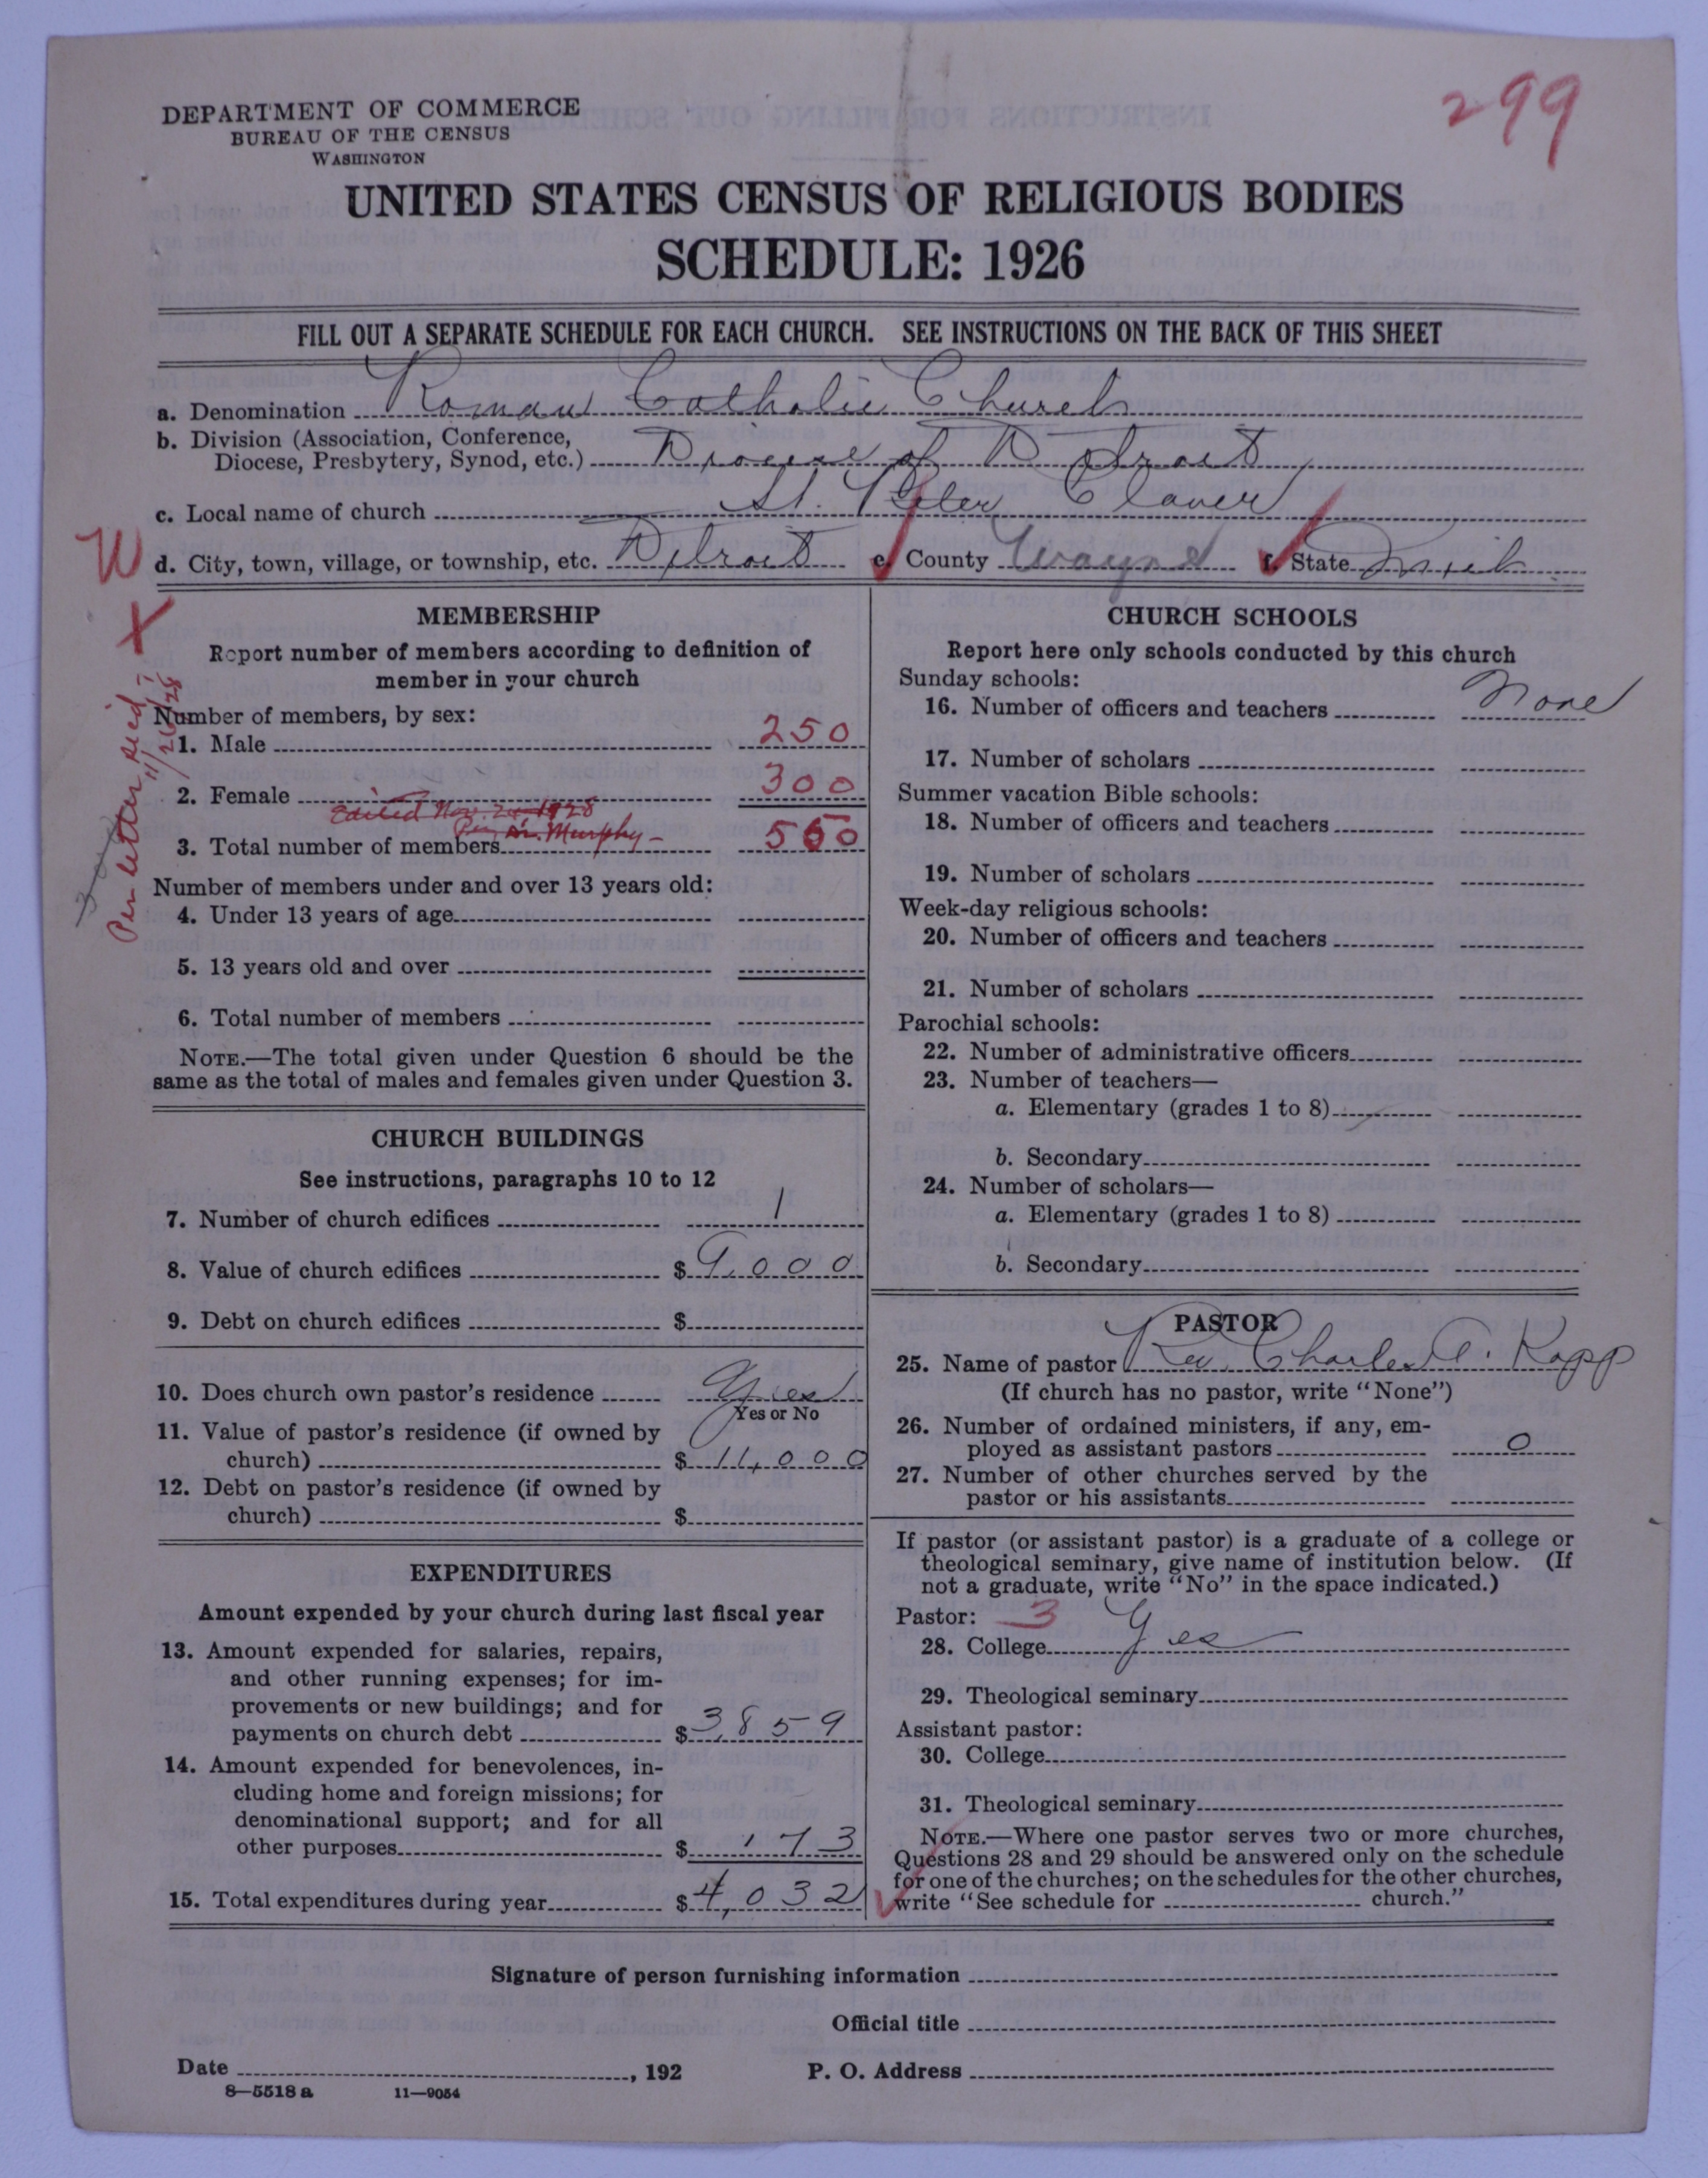 299
DEPARTMENT OF COMMERCE
BUREAU OF THE CENSUS
WASHINGTON
UNITED STATES CENSUS OF RELIGIOUS BODIES
SCHEDULE: 1926
FILL OUT A SEPARATE SCHEDULE FOR EACH CHURCH. SEE INSTRUCTIONS ON THE BACK OF THIS SHEET
a. Denomination Roman Catholic Church
b. Division (Association, Conference,
Diocese, Presbytery, Synod, etc.) Diocese of Detroit
c. Local name of church St. Peter Claver
W d. City, town, village, or township, etc. Detroit e. County Wayne f. State Mich.
X
Per letter rec'd - 11/26/28
300
MEMBERSHIP
Report number of members according to definition of
member in your church
Number of members, by sex:
1. Male 250
2. Female 300
Edited Nov. 20-1928
Per Dr. Murphy-
3. Total number of members 550
Number of members under and over 13 years old:
4. Under 13 years of age
5. 13 years old and over
6. Total number of members
NOTE.—The total given under Question 6 should be the
same as the total of males and females given under Question 3.
CHURCH BUILDINGS
See instructions, paragraphs 10 to 12
7. Number of church edifices 1
8. Value of church edifices $ 9,000
9. Debt on church edifices $
10. Does church own pastor's residence Yes
Yes or No
11. Value of pastor's residence (if owned by
church) $ 11,000
12. Debt on pastor's residence (if owned by
church) $
EXPENDITURES
Amount expended by your church during last fiscal year
13. Amount expended for salaries, repairs,
and other running expenses; for im-
provements or new buildings; and for
payments on church debt $ 3,859
14. Amount expended for benevolences, in-
cluding home and foreign missions; for
denominational support; and for all
other purposes $ 173
15. Total expenditures during year $ 4,032
CHURCH SCHOOLS
Report here only schools conducted by this church
Sunday schools:
16. Number of officers and teachers None
17. Number of scholars
Summer vacation Bible schools:
18. Number of officers and teachers
19. Number of scholars
Week-day religious schools:
20. Number of officers and teachers
21. Number of scholars
Parochial schools:
22. Number of administrative officers
23. Number of teachers—
a. Elementary (grades 1 to 8)
b. Secondary
24. Number of scholars—
a. Elementary (grades 1 to 8)
b. Secondary
PASTOR
25. Name of pastor Rev. Charles A. Kapp
(If church has no pastor, write "None")
26. Number of ordained ministers, if any, em-
ployed as assistant pastors 0
27. Number of other churches served by the
pastor or his assistants
If pastor (or assistant pastor) is a graduate of a college or
theological seminary, give name of institution below. (If
not a graduate, write "No" in the space indicated.)
Pastor: 3
28. College Yes
29. Theological seminary
Assistant pastor:
30. College
31. Theological seminary
NOTE.—Where one pastor serves two or more churches,
Questions 28 and 29 should be answered only on the schedule
for one of the churches; on the schedules for the other churches,
write "See schedule for church."
Signature of person furnishing information
Official title
Date , 192 P. O. Address
8—5518 a 11—9054